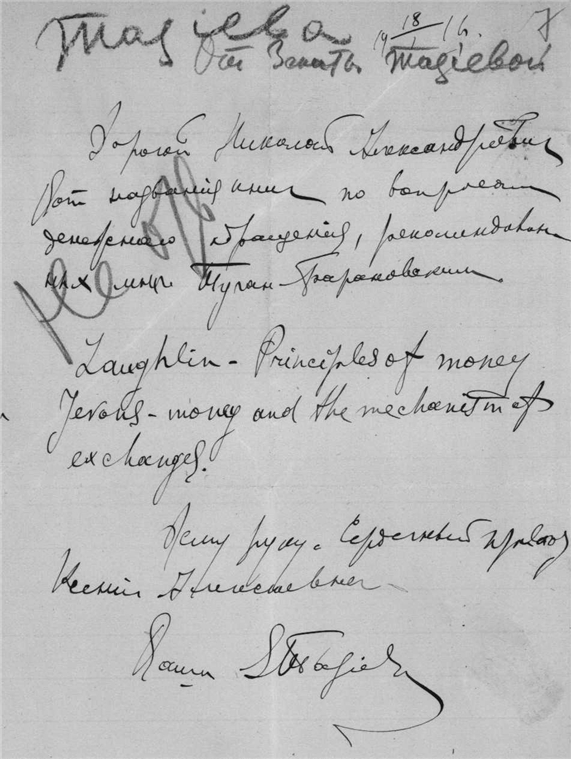 Тагiева
7
19 18/1 16.
От Зинаты Тагiевой
Дорогой Николай Александрович
Вот названiя книг по вопросам
денежнаго обращенiя, рекомендован-
ных мнѣ Туган-Барановским
Laughlin - Principles of money
Jevons - money and the mechanism of
exchanges.
Жму руку. Сердечный привет
Ксенiи Алексеевне
Ваш Тагiев